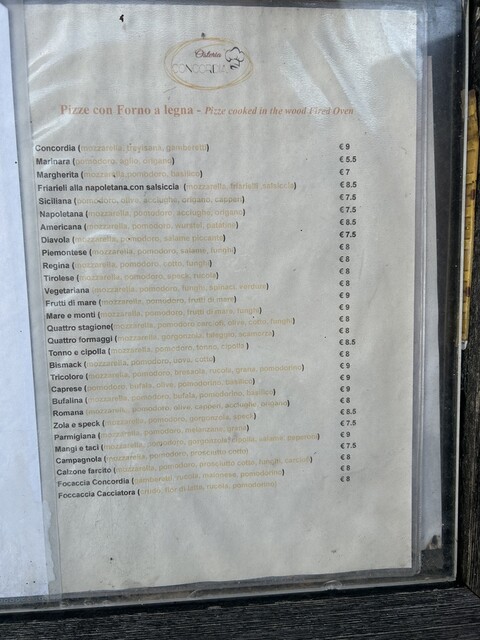 Osteria
CONCORDIA
Pizze con Forno a legna - Pizze cooked in the wood Fired Oven
Concordia (mozzarella, trevisana, gamberetti) € 9
Marinara (pomodoro, aglio, origano) € 5.5
Margherita (mozzarella, pomodoro, basilico) € 7
Friarieli alla napoletana,con salsiccia (mozzarella, friarielli, salsiccia) € 8.5
Siciliana (pomodoro, olive, acciughe, origano, capperi) € 7.5
Napoletana (mozzarella, pomodoro, acciughe, origano) € 7.5
Americana (mozzarella, pomodoro, wurstel, patatine) € 8.5
Diavola (mozzarella, pomodoro, salame piccante) € 7.5
Piemontese (mozzarella, pomodoro, salame, funghi) € 8
Regina (mozzarella, pomodoro, cotto, funghi) € 8
Tirolese (mozzarella, pomodoro, speck, rucola) € 8
Vegetariana (mozzarella, pomodoro, funghi, spinaci, verdure) € 8
Frutti di mare (mozzarella, pomodoro, frutti di mare) € 9
Mare e monti (mozzarella, pomodoro, frutti di mare, funghi) € 9
Quattro stagione(mozzarella, pomodoro, carciofi, olive, cotto, funghi) € 8
Quattro formaggi (mozzarella, gorgonzola, taleggio, scamorza) € 8
Tonno e cipolla (mozzarella, pomodoro, tonno, cipolla) € 8.5
Bismack (mozzarella, pomodoro, uova, cotto) € 8
Tricolore (mozzarella, pomodoro, bresaola, rucola, grana, pomodorino) € 9
Caprese (pomodoro, bufala, olive, pomodorino, basilico) € 9
Bufalina (mozzarella, pomodoro, bufala, pomodorino, basilico) € 9
Romana (mozzarella, pomodoro, olive, capperi, acciughe, origano) € 8
Zola e speck (mozzarella, pomodoro, gorgonzola, speck) € 8.5
Parmigiana (mozzarella, pomodoro, melanzane, grana) € 7.5
Mangi e taci (mozzarella, pomodoro, gorgonzola, cipolla, salame, peperoni) € 9
Campagnola (mozzarella, pomodoro, prosciutto cotto) € 7.5
Calzone farcito (mozzarella, pomodoro, prosciutto cotto, funghi, carciofi) € 8
Focaccia Concordia (gamberetti, rucola, maionese, pomodorino) € 8
Foccaccia Cacciatora (crudo, fior di latte, rucola, pomodorino) € 8